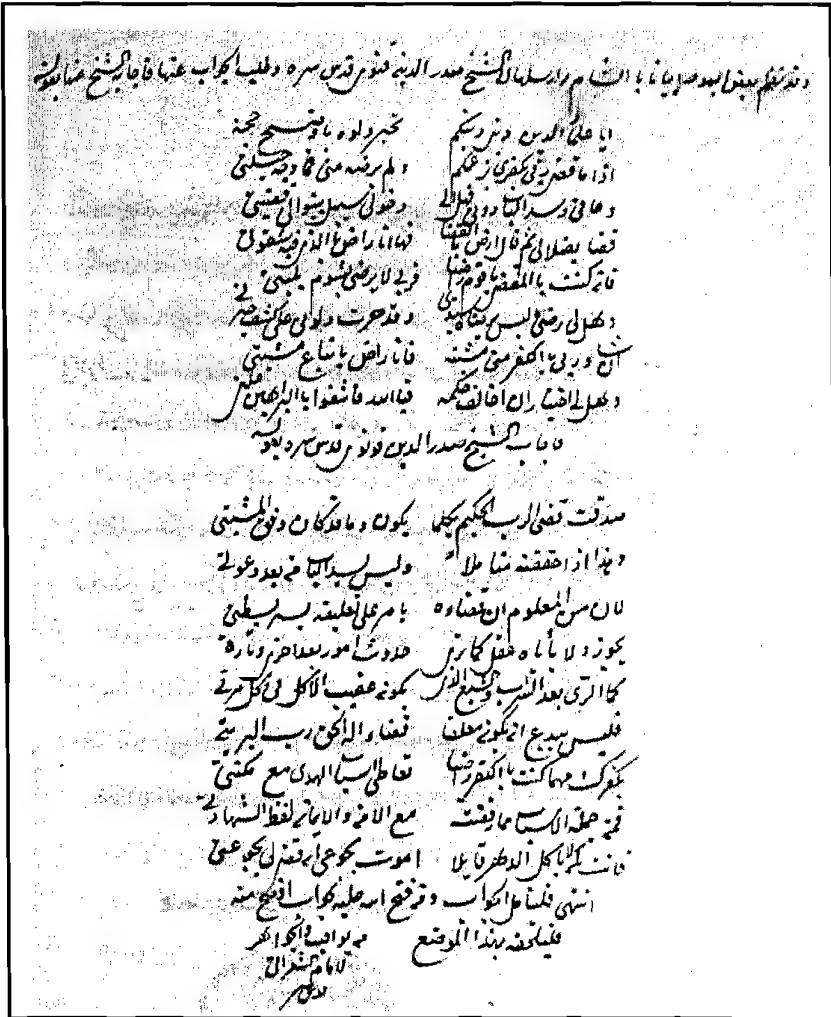 وقد نظم بعض اليهود ابياتا بالشام وارسلها الى الشيخ صدر الدين قنوى قدس سره وطلب الجواب عنها فاجابه الشيخ عنها بقوله
ايا علماء الدين ذمى دينكم تحير دلوه باوضح حجة
اذا ما قضى ربى بكفرى بزعمكم ولم يرضه منى فما وجه حيلتى
دعانى وسد الباب دونى فهل الى دخولى سبيل بينوا لى قضيتى
قضا بضلالى ثم قال ارض بالقضا فها انا راض بالذى فيه شقوتى
فان كنت بالمقضى يا قوم راضيا فربى لا يرضى بشؤم بليتى
وهل لى رضى ما ليس يرضاه سيدى وقد حرت دلونى على كشف حيرتى
اذا شاء ربى بالكفر منى مشيئة فانا راض باتباع مشيئتى
وهل لى اختيار ان اخالف حكمه فبالله فاشفوا بالبراهين علتى
فاجاب الشيخ صدر الدين قونوى قدس سره بقوله
صدقت قضى الرب الحكيم بكلما يكون وما قد كان وفق المشيئة
وهذا اذا حققته متاملا وليس يسد الباب من بعد دعوة
لان من المعلوم ان قضاءه بامر على تعليقه بشريطة
يجوز ولا يأباه عقل كما ترى حدوث امور بعد اخرى تأدت
كما الرى بعد الشرب والشبع الذى يكون عقيب الاكل فى كل مرة
فليس ببدع ان يكون معلقا قضاء اله الحق رب البرية
بكفرك مهما كنت بالكفر راضيا تعاطى اسباب الهدى مع مكنة
فمن جملة الاسباب مما رفضت مع الامن والايمان لفظ الشهادة
فانت كمن لا ياكل الدهر قائلا اموت بجوعى اذ قضى لى بجوعة
انتهى فليتامل الجواب ومن فتح الله عليه بجواب اوضح منه
فليلحقه بهذا الموضع من يواقيت والجواهر
للامام الشعرانى